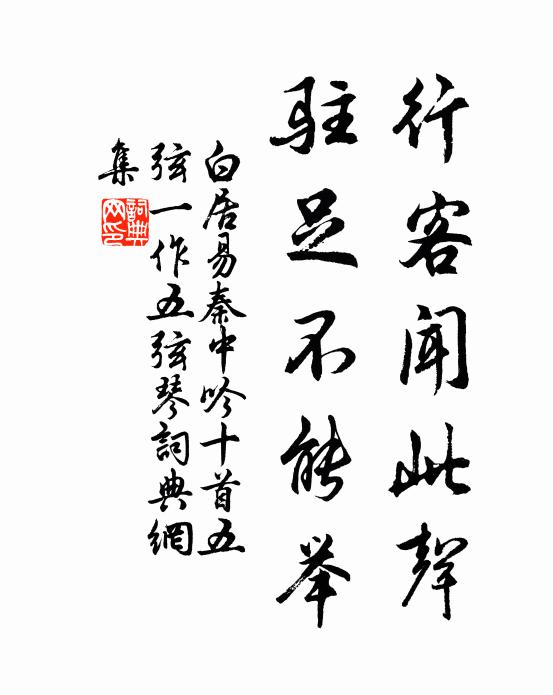 行客闻此聲
驻足不能举
白居易秦中吟十首五
弦一作五弦琴詞典網
集
詞典
网印